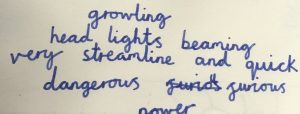 growling
head lights beaming
very streamline and quick
dangerous furious
power